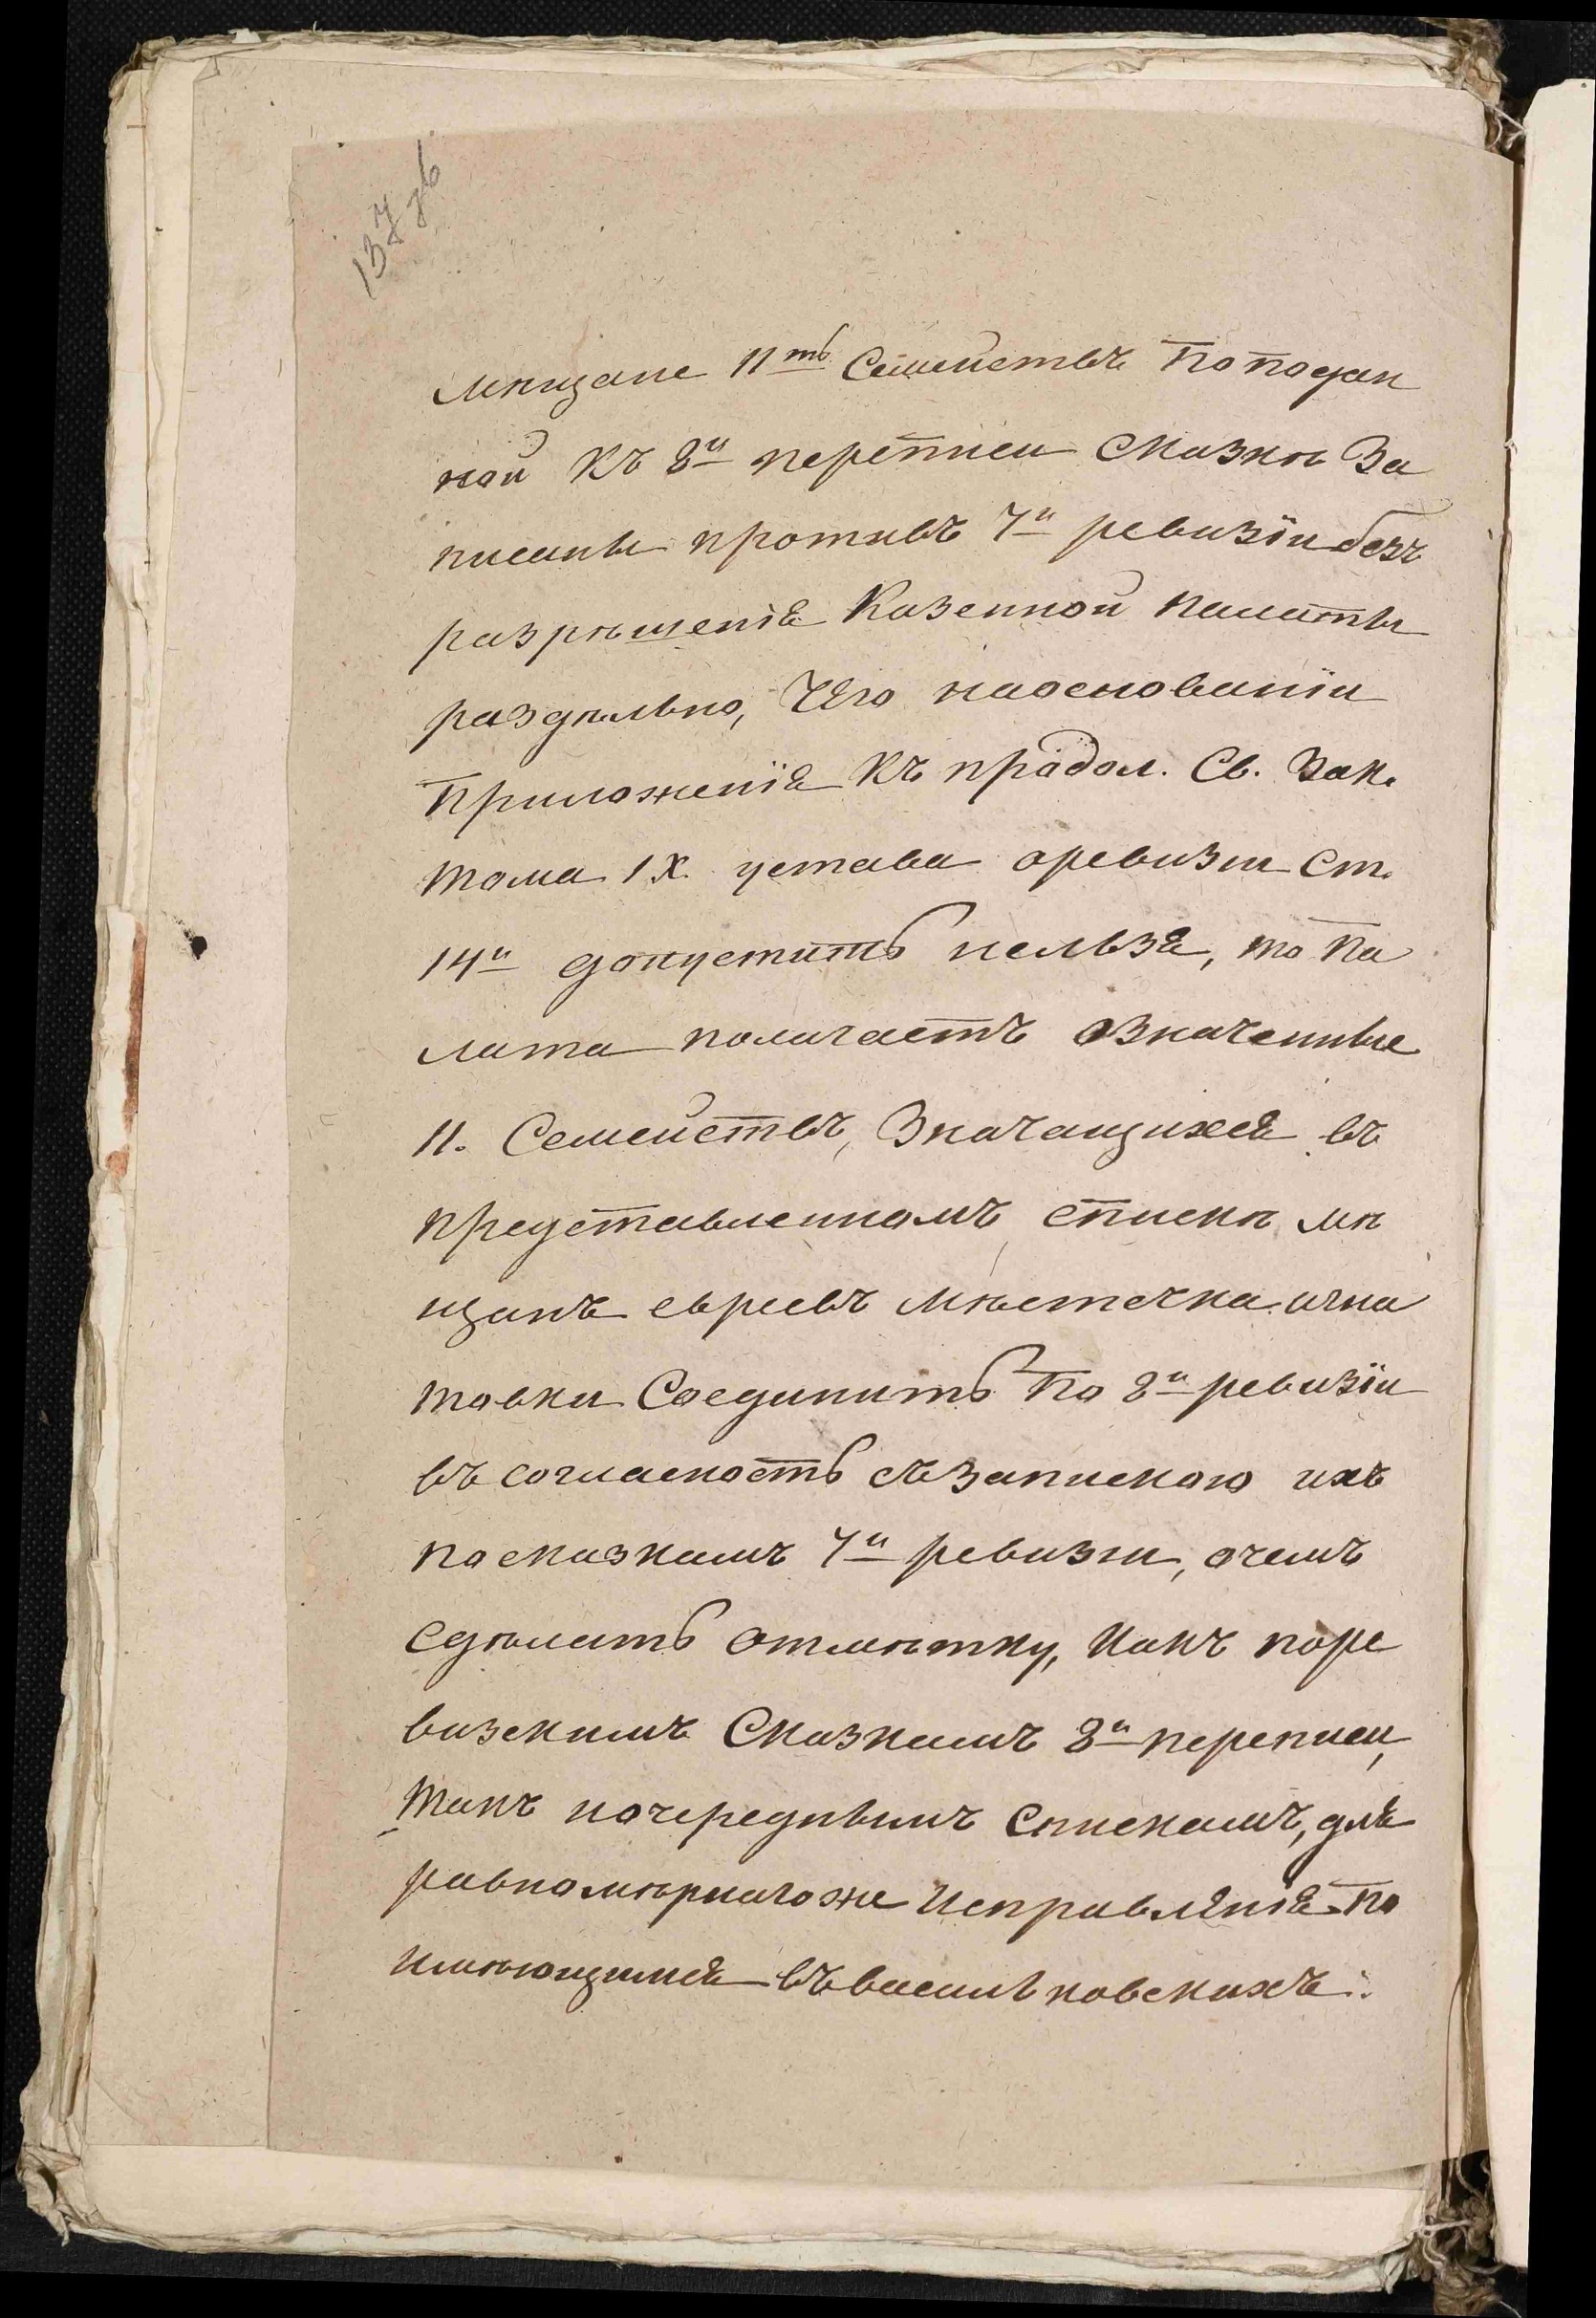 137 зв
мѣщане 11ть Семействъ по подан
ной къ 8й переписи Сказкѣ За
писаны противъ 7й ревизіи безъ
разрѣшенія Казенной палаты
раздѣльно, Чего наосновании
Приложенія къ прадол. Св. Зак.
тома IX. устава оревизіи Ст.
14й допустить нельзя, то Па
лата полагаетъ Означенные
11. Семействъ, Значащихся въ
представленномъ спискѣ мѣ
щанъ евреевъ мѣстечка игна
товки Соединить По 8й ревизіи
въ согласность съзапискою ихъ
посказкамъ 7й ревизіи, очемъ
Сдѣлать отмѣтку, какъ поре
визскимъ Сказкамъ 8й переписи,
такъ иочереднымъ Спискамъ, для
равномѣрнагоже Исправленія по
имѣющимся въвасильковскихъ